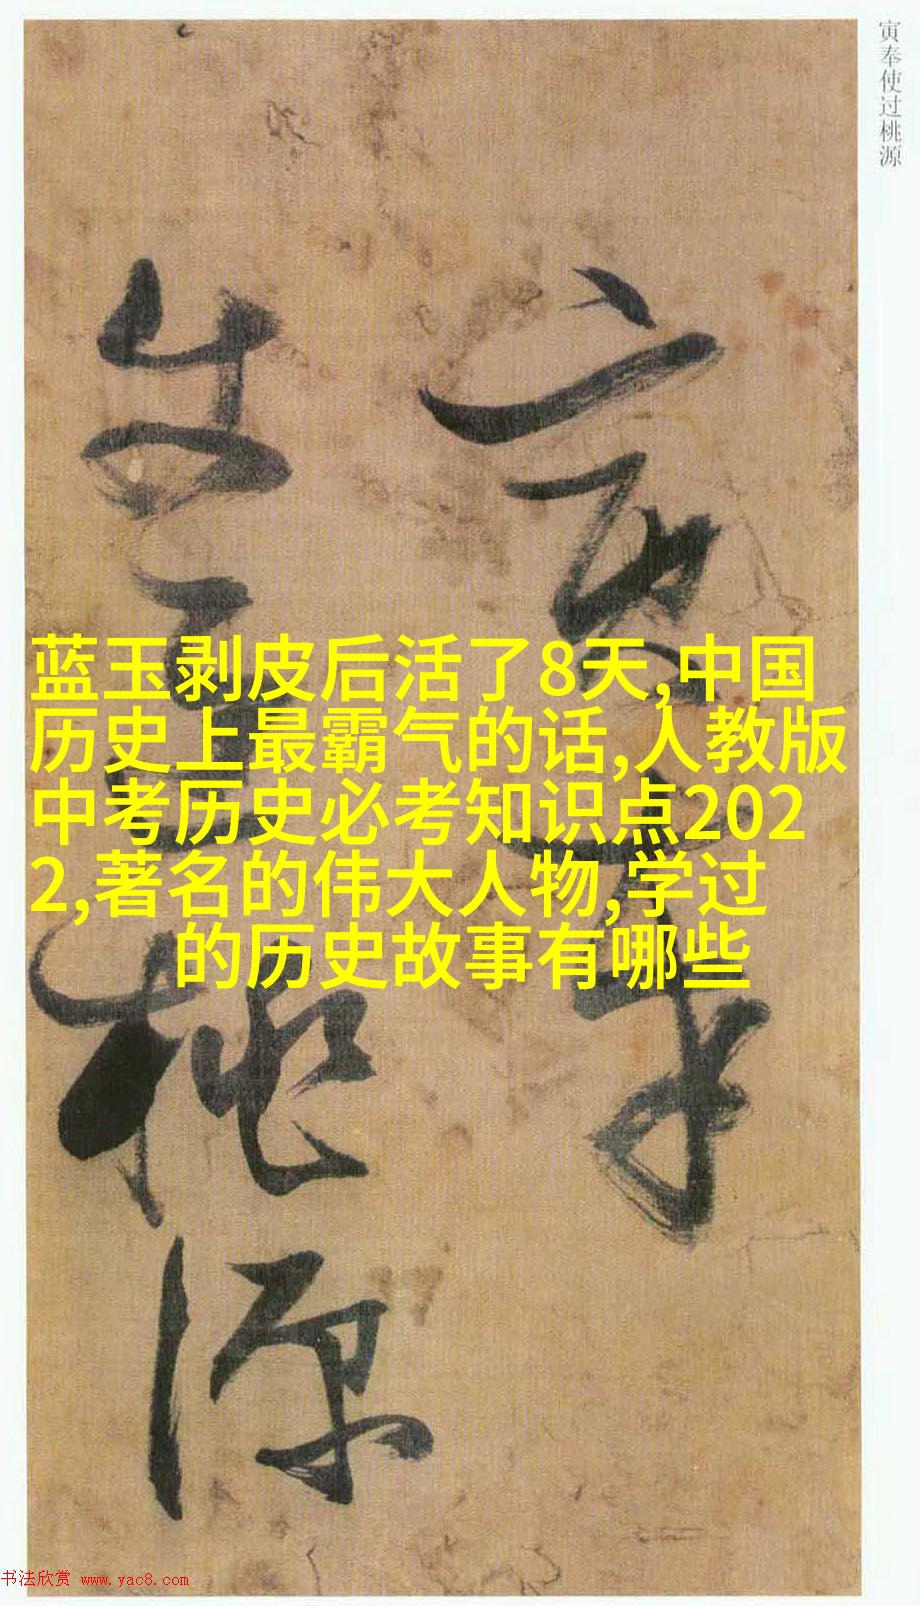 寅奉使过桃源
寅奉
使過桃源
蓝玉剥皮后活了8天,中国
历史上最霸气的话,人教版
中考历史必考知识点202
2,著名的伟大人物,学过
的历史故事有哪些
书法欣赏 www.yac8.com